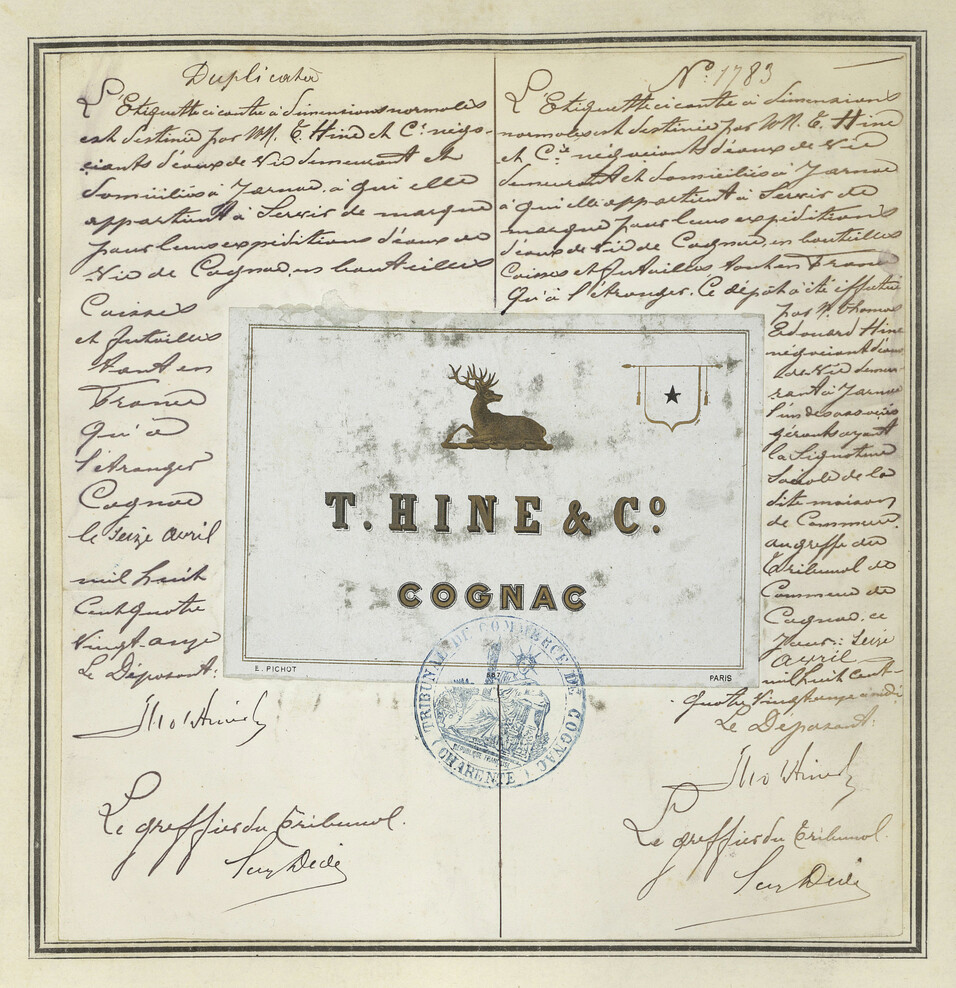 Duplicata
L'Etiquette ci contre à dimensions normales
est destinée par MM. E. Hine et Cie négo-
ciants d'eaux de Vie demeurant et
domiciliés à Jarnac, à qui elle
appartient à Servir de marque
pour leurs expéditions d'eaux de
Vie de Cognac, en bouteilles
Caisses
et futailles
tant en
France
qu'à
l'étranger
Cognac
le Seize avril
mil huit
Cent quatre
Vingt-onze
Le Déposant:
Le greffier du Tribunal.
No. 1783
L'Etiquette ci contre à dimensions
normales est destinée par MM. E. Hine
et Cie négociants d'eaux de Vie
demeurant et domiciliés à Jarnac
à qui elle appartient à Servir de
marque pour leurs expéditions
d'eaux de Vie de Cognac, en bouteilles
Caisses et futailles tant en France
qu'à l'étranger. Ce dépôt a été effectué
par M. Thomas
Edouard Hine
négociant d'eaux
de Vie demeu-
rant à Jarnac
l'un des associés
gérants ayant
la Signature
Sociale de la
dite maison
de Commerce.
au greffe du
Tribunal de
Commerce de
Cognac, ce
Jour: Seize
avril
mil huit cent-
quatre Vingt onze
Le Déposant:
Le greffier du Tribunal.
T. HINE & Co
COGNAC
E. PICHOT
PARIS
TRIBUNAL DE COMMERCE DE COGNAC
RÉPUBLIQUE FRANÇAISE
(CHARENTE)